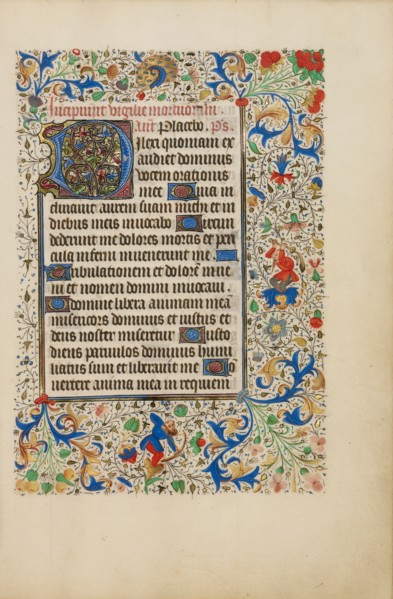 Incipiunt vigilie mortuorum.
Ant Placebo. ps.
Dilexi quoniam ex
audiet dominus
vocem orationis
mee Quia in
clinauit aurem suam michi et in
diebus meis inuocabo Circum
dederunt me dolores mortis et peri
cula inferni inuenerunt me.
Tribulationem et dolorē inue
ni et nomen domini inuocaui.
O domine libera animam meā
misericors dominus et iustus et
deus noster miseretur Custo
diens paruulos dominus humi
liatus sum et liberauit me Cō
uertere anima mea in requiem